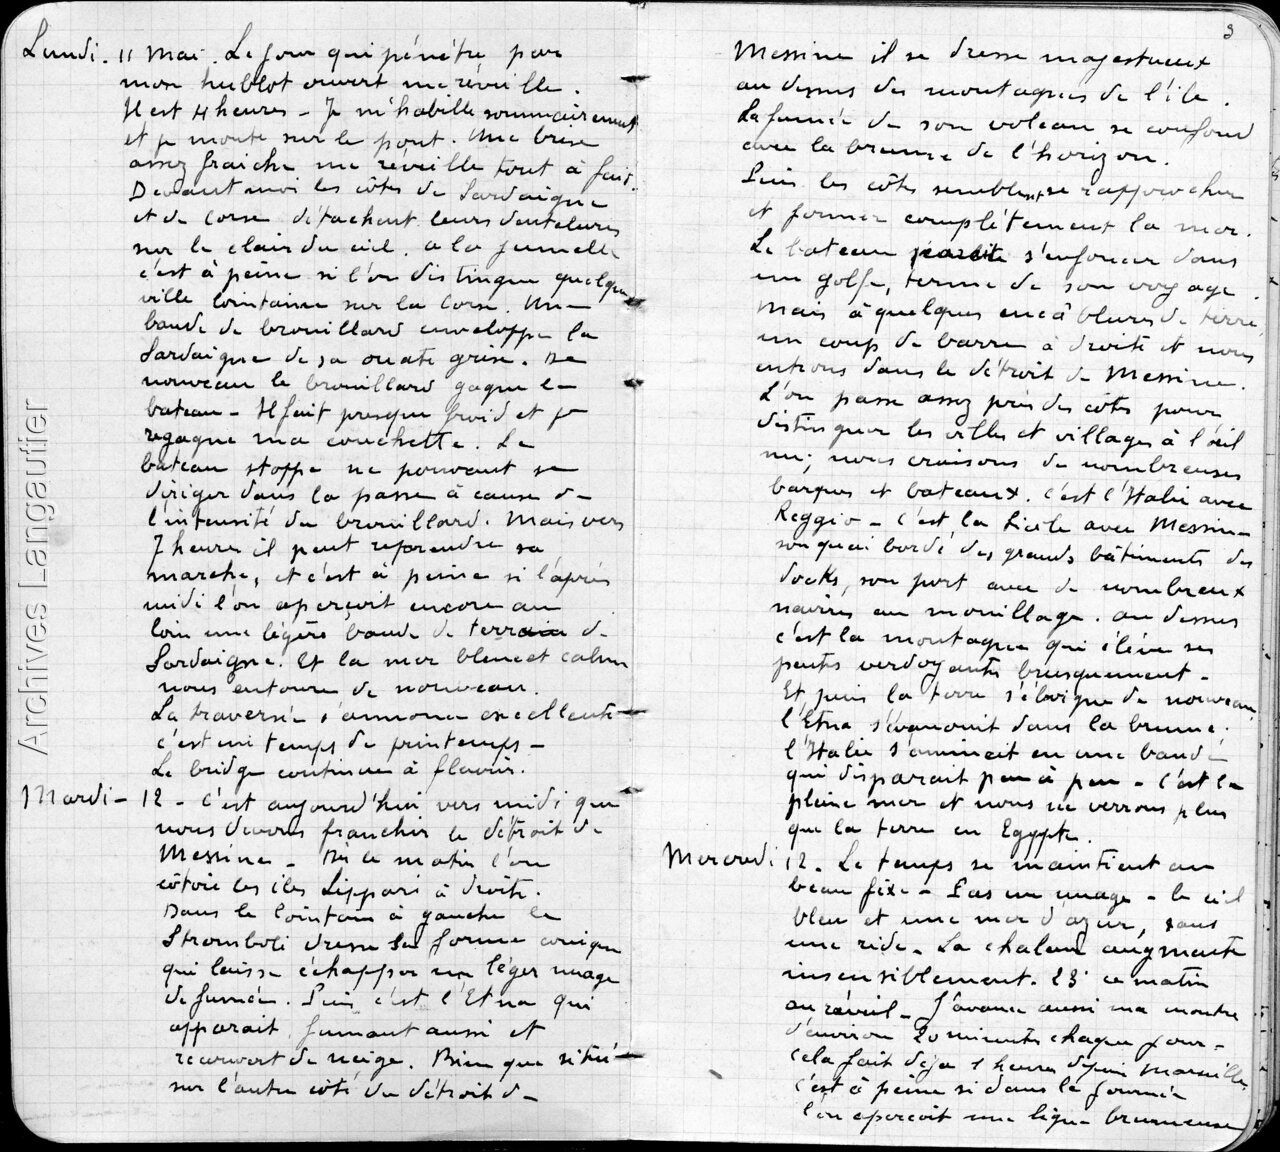 Lundi. 11 Mai. Le jour qui pénètre par
mon hublot ouvert me réveille.
Il est 4 heures - Je m'habille sommairement
et je monte sur le pont. Une brise
assez fraiche me réveille tout à fait.
Devant moi les côtes de Sardaigne
et de Corse détachent leurs dentelures
sur le clair du ciel. a la jumelle
c'est à peine si l'on distingue quelque
ville lointaine sur la Corse. Une
bande de brouillard enveloppe la
Sardaigne de sa ouate grise. De
nouveau le brouillard gagne le
bateau - Il fait presque froid et je
regagne ma couchette. Le
bateau stoppe ne pouvant se
diriger dans la passe à cause de
l'intensité du brouillard. Mais vers
7 heures il peut reprendre sa
marche, et c'est à peine si l'après
midi l'on aperçoit encore au
loin une légère bande de terre de
Sardaigne. Et la mer bleue et calme
nous entoure de nouveau.
La traversée s'annonce excellente
c'est un temps de printemps -
Le bridge continue à fleurir.
Mardi - 12 - C'est aujourd'hui vers midi que
nous devons franchir le détroit de
Messine - Dès ce matin l'on
côtoie les iles Lippari à droite.
Dans le lointain à gauche le
Stromboli dresse sa forme conique
qui laisse échapper un léger nuage
de fumée. Puis c'est l'Etna qui
apparait fumant aussi et
recouvert de neige. Bien que situé
sur l'autre côté du détroit de
3
Messine il se dresse majestueux
au dessus des montagnes de l'île.
La fumée de son volcan se confond
avec la brume de l'horizon.
Puis les côtes semblent se rapprocher
et fermer complètement la mer.
Le bateau s'enfoncer dans
un golfe, terme de son voyage.
Mais à quelques encâblures de terre,
un coup de barre à droite et nous
entrons dans le détroit de Messine.
L'on passe assez près des côtes pour
distinguer les villes et villages à l'œil
nu; nous croisons de nombreuses
barques et bateaux. C'est l'Italie avec
Reggio - C'est la Sicile avec Messine
son quai bordé des grands bâtiments des
docks, son port avec de nombreux
navires au mouillage. au dessus
c'est la montagne qui élève ses
pentes verdoyantes brusquement -
Et puis la terre s'éloigne de nouveau,
l'Etna s'évanouit dans la brume.
l'Italie s'amincit en une bande
qui disparait peu à peu - C'est la
pleine mer et nous ne verrons plus
que la terre en Egypte.
Mercredi 12. Le temps se maintient au
beau fixe - Pas un nuage - le ciel
bleu et une mer d'azur, sans
une ride - La chaleur augmente
insensiblement. 23° ce matin
au réveil - J'avance aussi ma montre
d'environ 20 minutes chaque jour -
cela fait déja 1 heure depuis Marseille,
c'est à peine si dans la journée
l'on aperçoit une ligne brumeuse
Archives Langautier